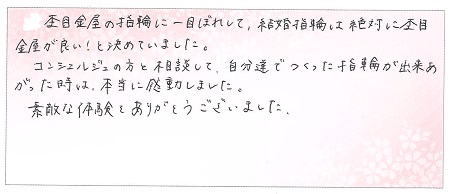 杢目金屋の指輪に一目ぼれして、結婚指輪は絶対に杢目
金屋が良い！と決めていました。
コンシェルジュの方と相談して、自分達でつくった指輪が出来あ
がった時は、本当に感動しました。
素敵な体験をありがとうございました。